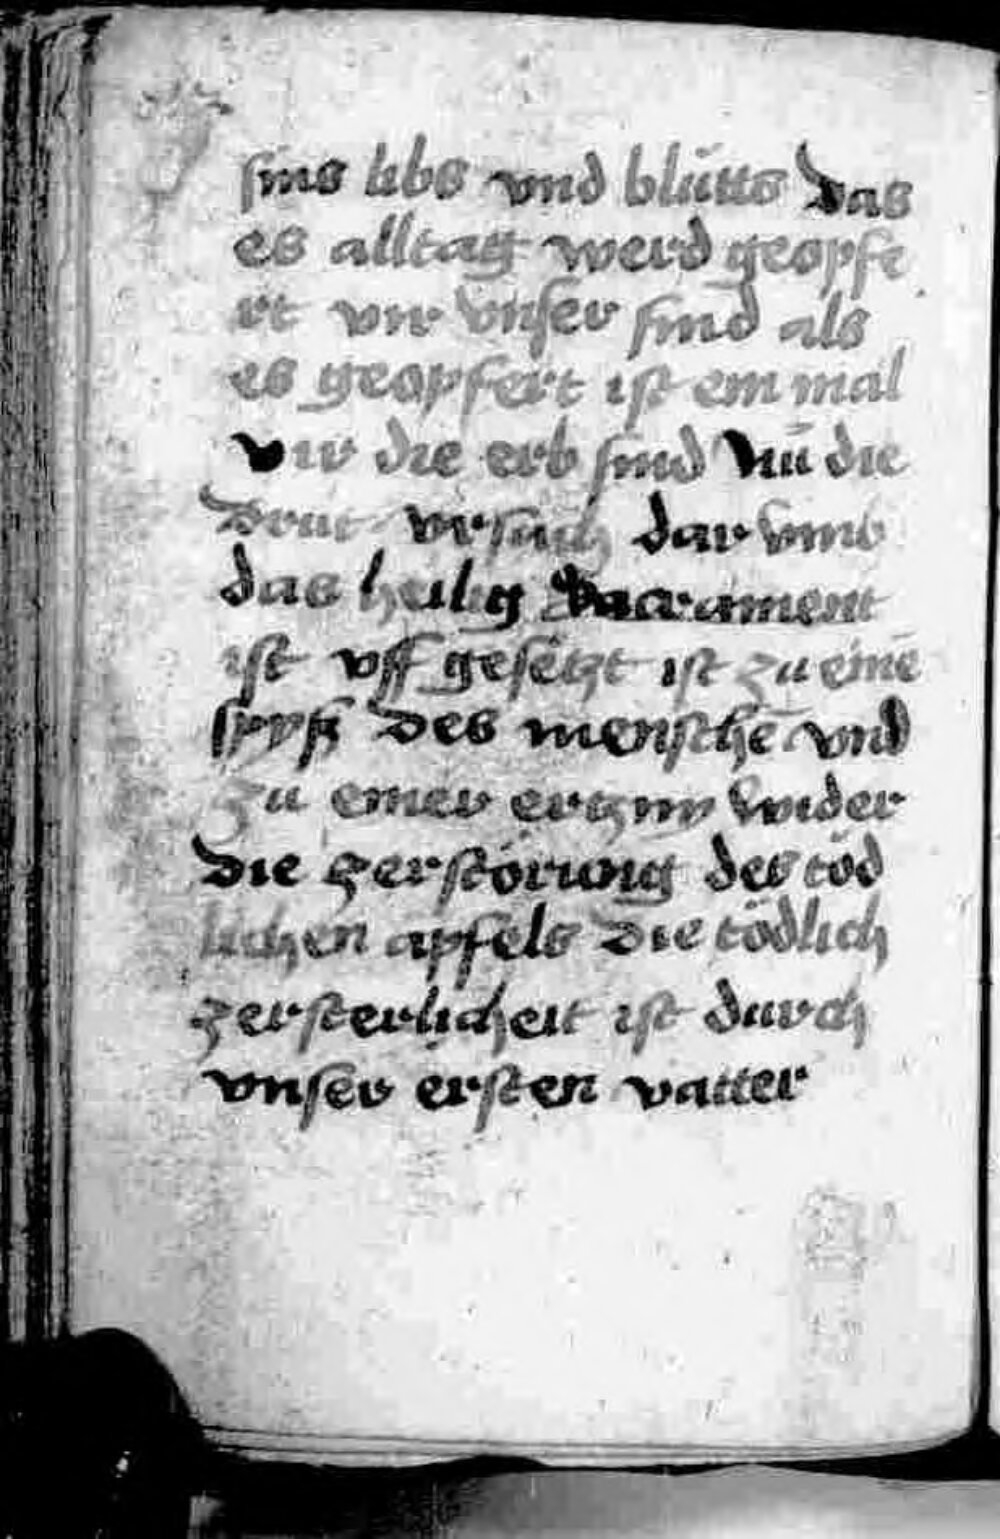 sins libs vnd blütts das
es alltag werd geopfe
rt vir vnser sind als
es geopfert ist ein mal
vir die erb sind Nū die
vrsach dar vmb
das heilig Sacrament
ist vff gesetzt ist zu eine̅
spyß des mensche̅ vnd
zu einer ertzny wider
die zerstörung des töd
lichen apfels die tödlich
zersterlicheit ist durch
vnser ersten vatter